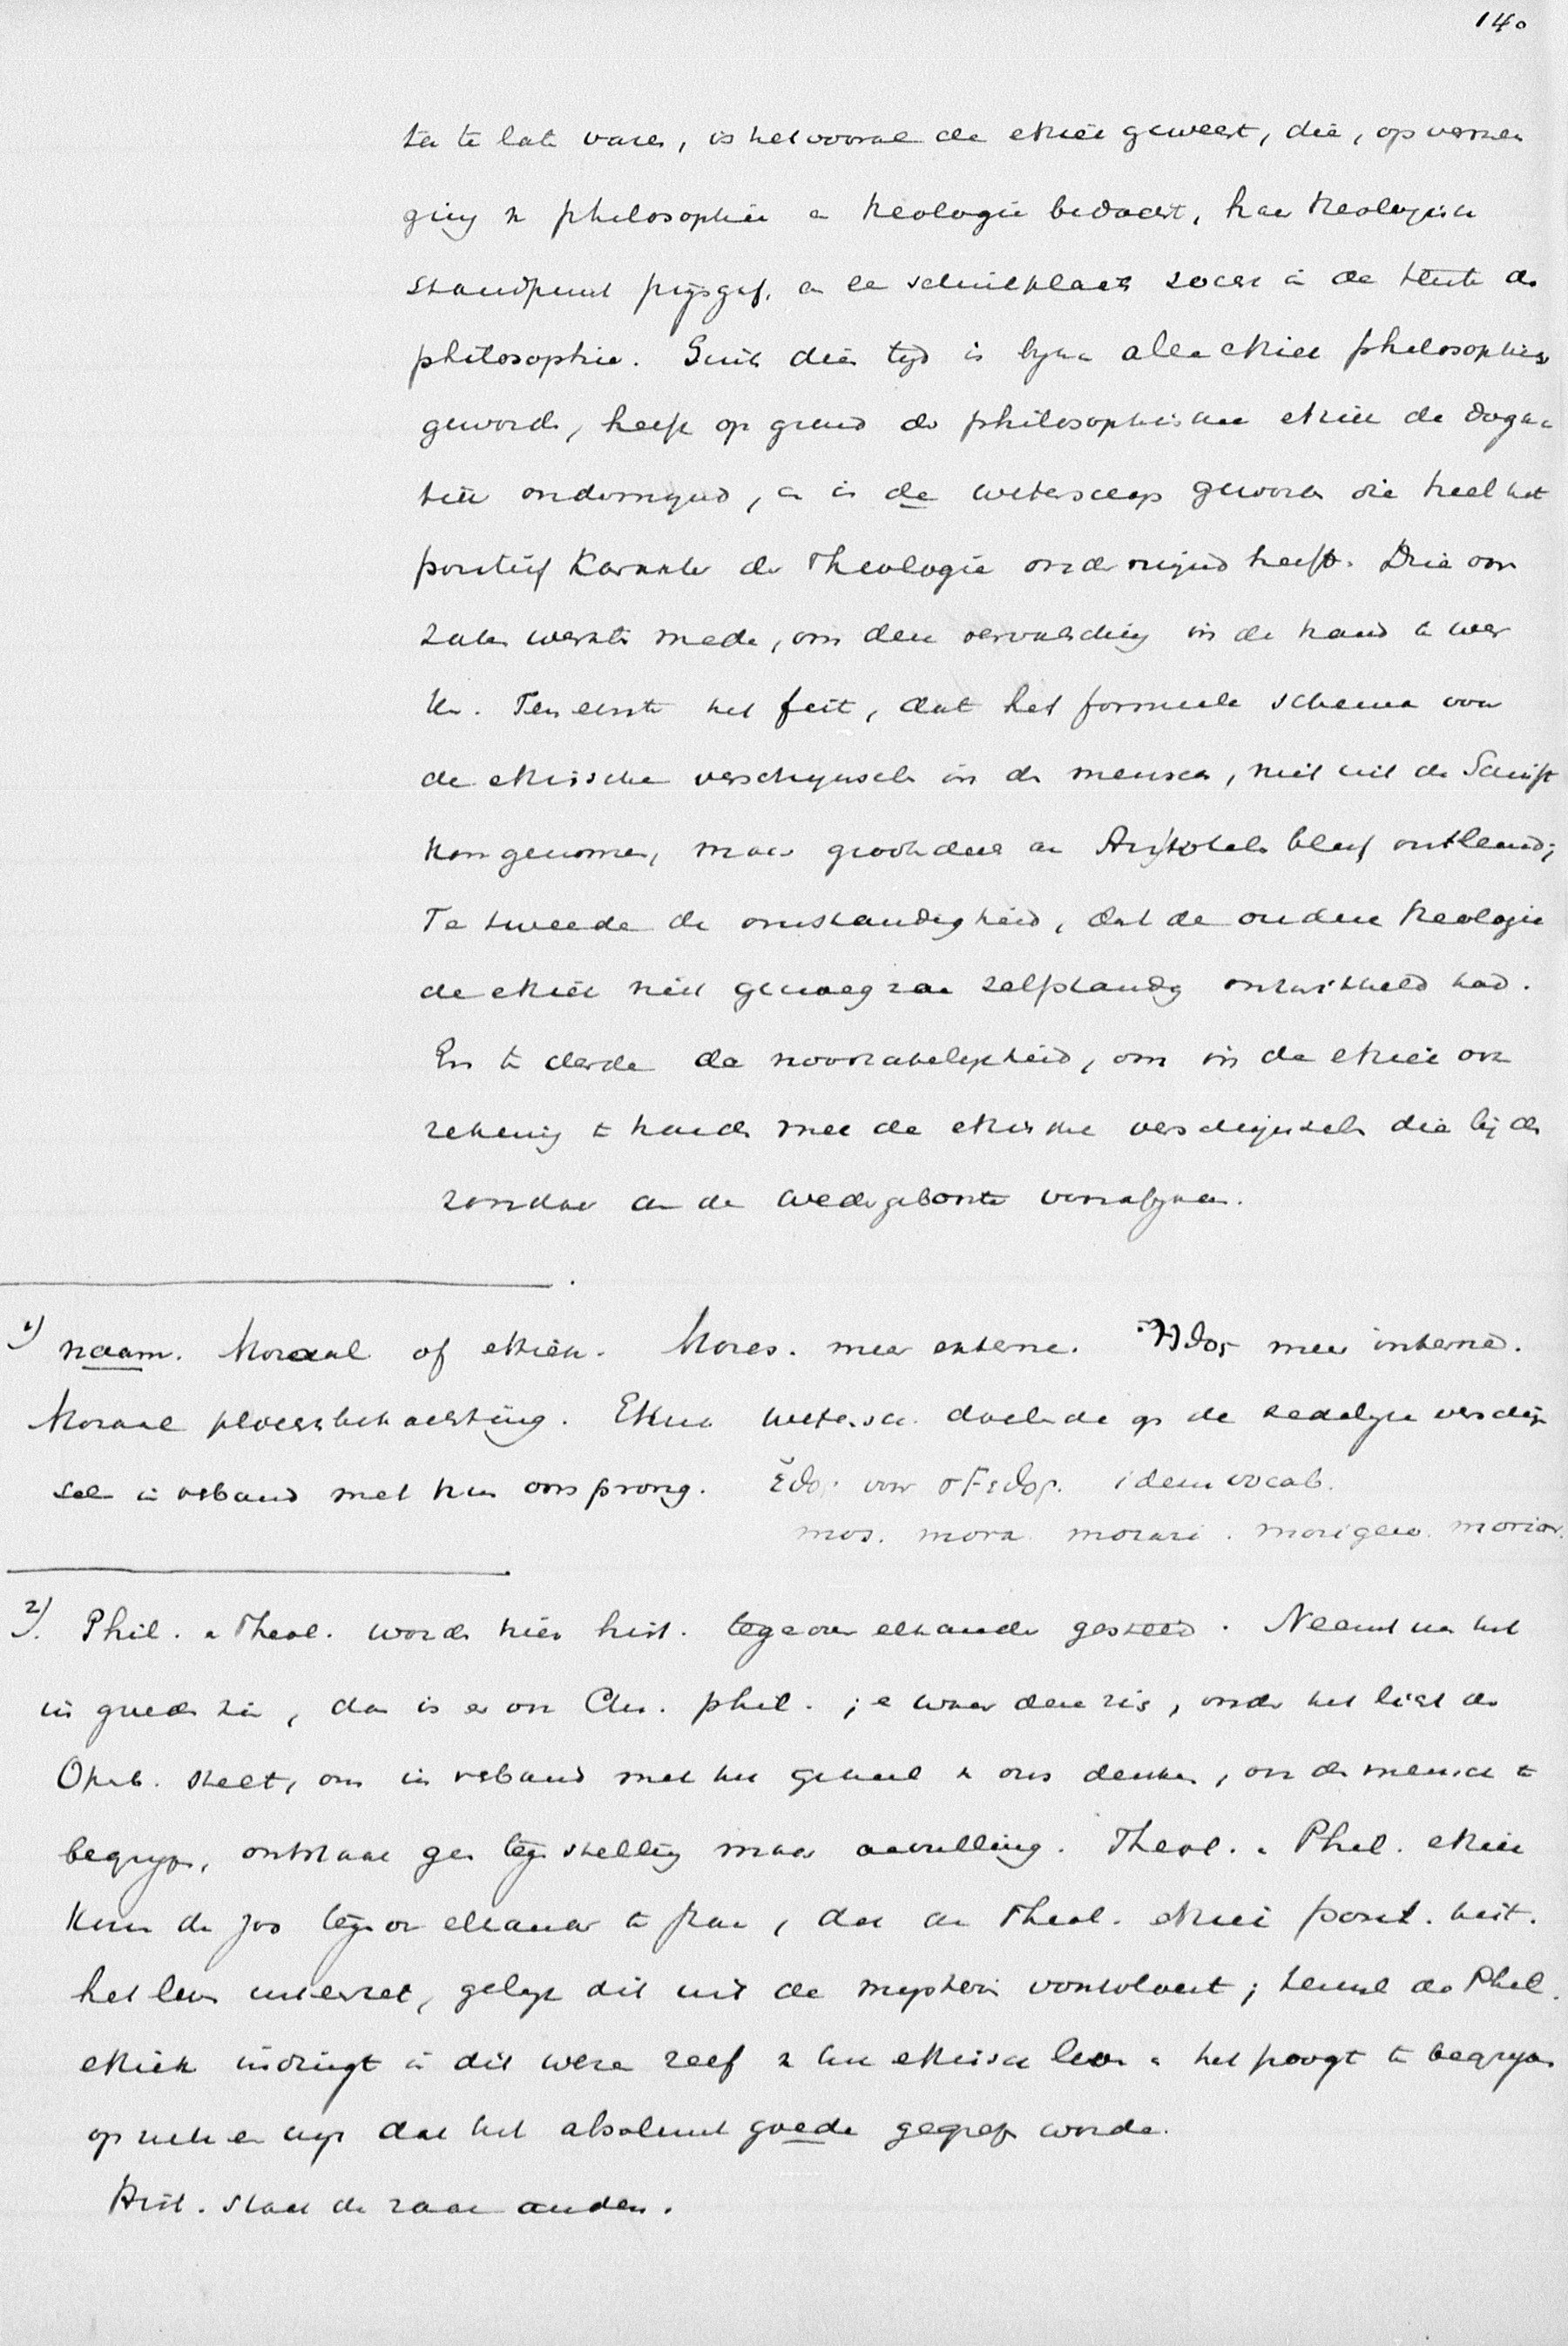 140
te te late vare, is het vooral de ethiek geweest, die, op vermen
ging v philosophie en theologie bedacht, haar theologisch
standpunt prijsgaf, en een schuilplaats zocht in de tente der
philosophie. Sints dien tijd is bijna alle ethiek philosophisch
geworde, heeft op grond der philosophische ethiek de dogma
tiek ondermijnd, en is de wetenschap geworde die heel het
positief karakter der Theologie ondermijnd heeft. Drie oor
zake werkte mede, om deze vervalsching in de hand te wer
ke. Ten eerste het feit, dat het formeele schema voor
de ethische verschijnsele in de mensch, niet uit de Schrift
kon genomen, maar grootendeels aan Aristoteles bleef ontleend;
Te tweede de omstandigheid, dat de oudere theologie
de ethiek niet genoegzaam zelfstandig ontwikkeld had.
En te derde de noodzakelijkheid, om in de ethiek ook
rekening te houde met de ethische verschijnsele die bij de
zondaar en de wedergeboorte
1) naam. Moraal of ethiek. Mores. meer externe. Ἦθος meer interne.
Moraal plichtsbetrachting. Ethiek wetensch. doelende op de zedelijke verschijn
sele in verband met hun oorsprong. ἔθος voor σϝεθος. idem vocab.
mos. mora. morari. morigero. morior.
2). Phil. en Theol. worde hier hist. tegeover elkander gesteld. Neemt men het
in goede zin, dan is er ook Chr. phil. ; en waar deze zich, onder het licht der
Openb. stelt, om in verband met het geheel v ons denke, ook de mensch te
begrijpe, ontstaat gee tegestelling maar aavulling. Theol. en Phil. ethiek
kome da zoo tegeover elkander te staa, dat de Theol. ethiek posit. uit.
het leve uiteenzet, gelijk dit uit de mysterie voortvloeit; terwijl de Phil.
ethiek indringt in dit weze zelf v het ethische leve en het poogt te begrijpe
op zulk een wijze dat het absoluut goede gegrepe worde.
Hist. staat de zaak anders.